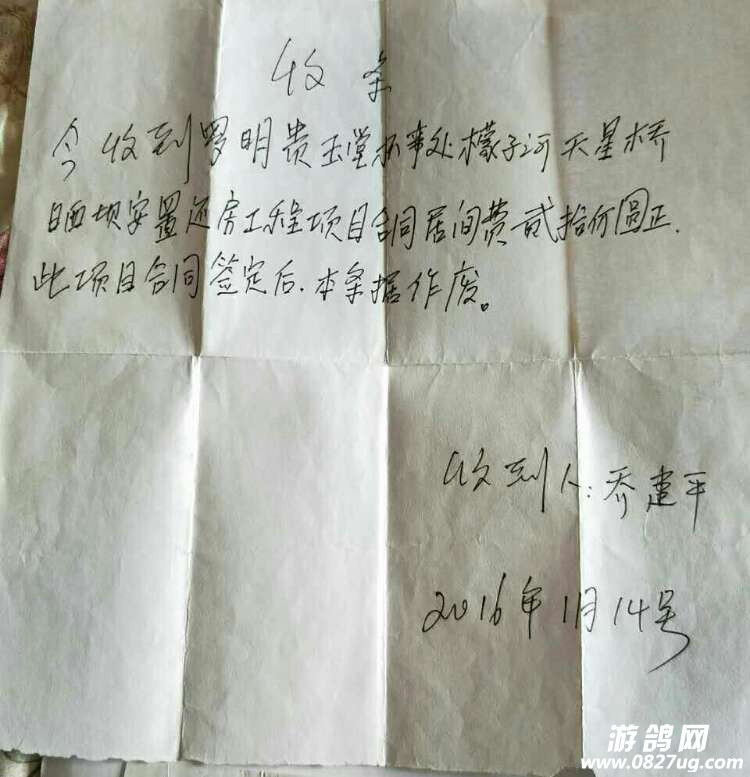 收条
今收到罗明贵玉堂办事处檬子河天星桥
晒坝安置还房工程项目合同居间费贰拾万圆正.
此项目合同签定后.本条据作废。
收到人:乔建平
2016年1月14号
游鸽网
www.0827ug.com